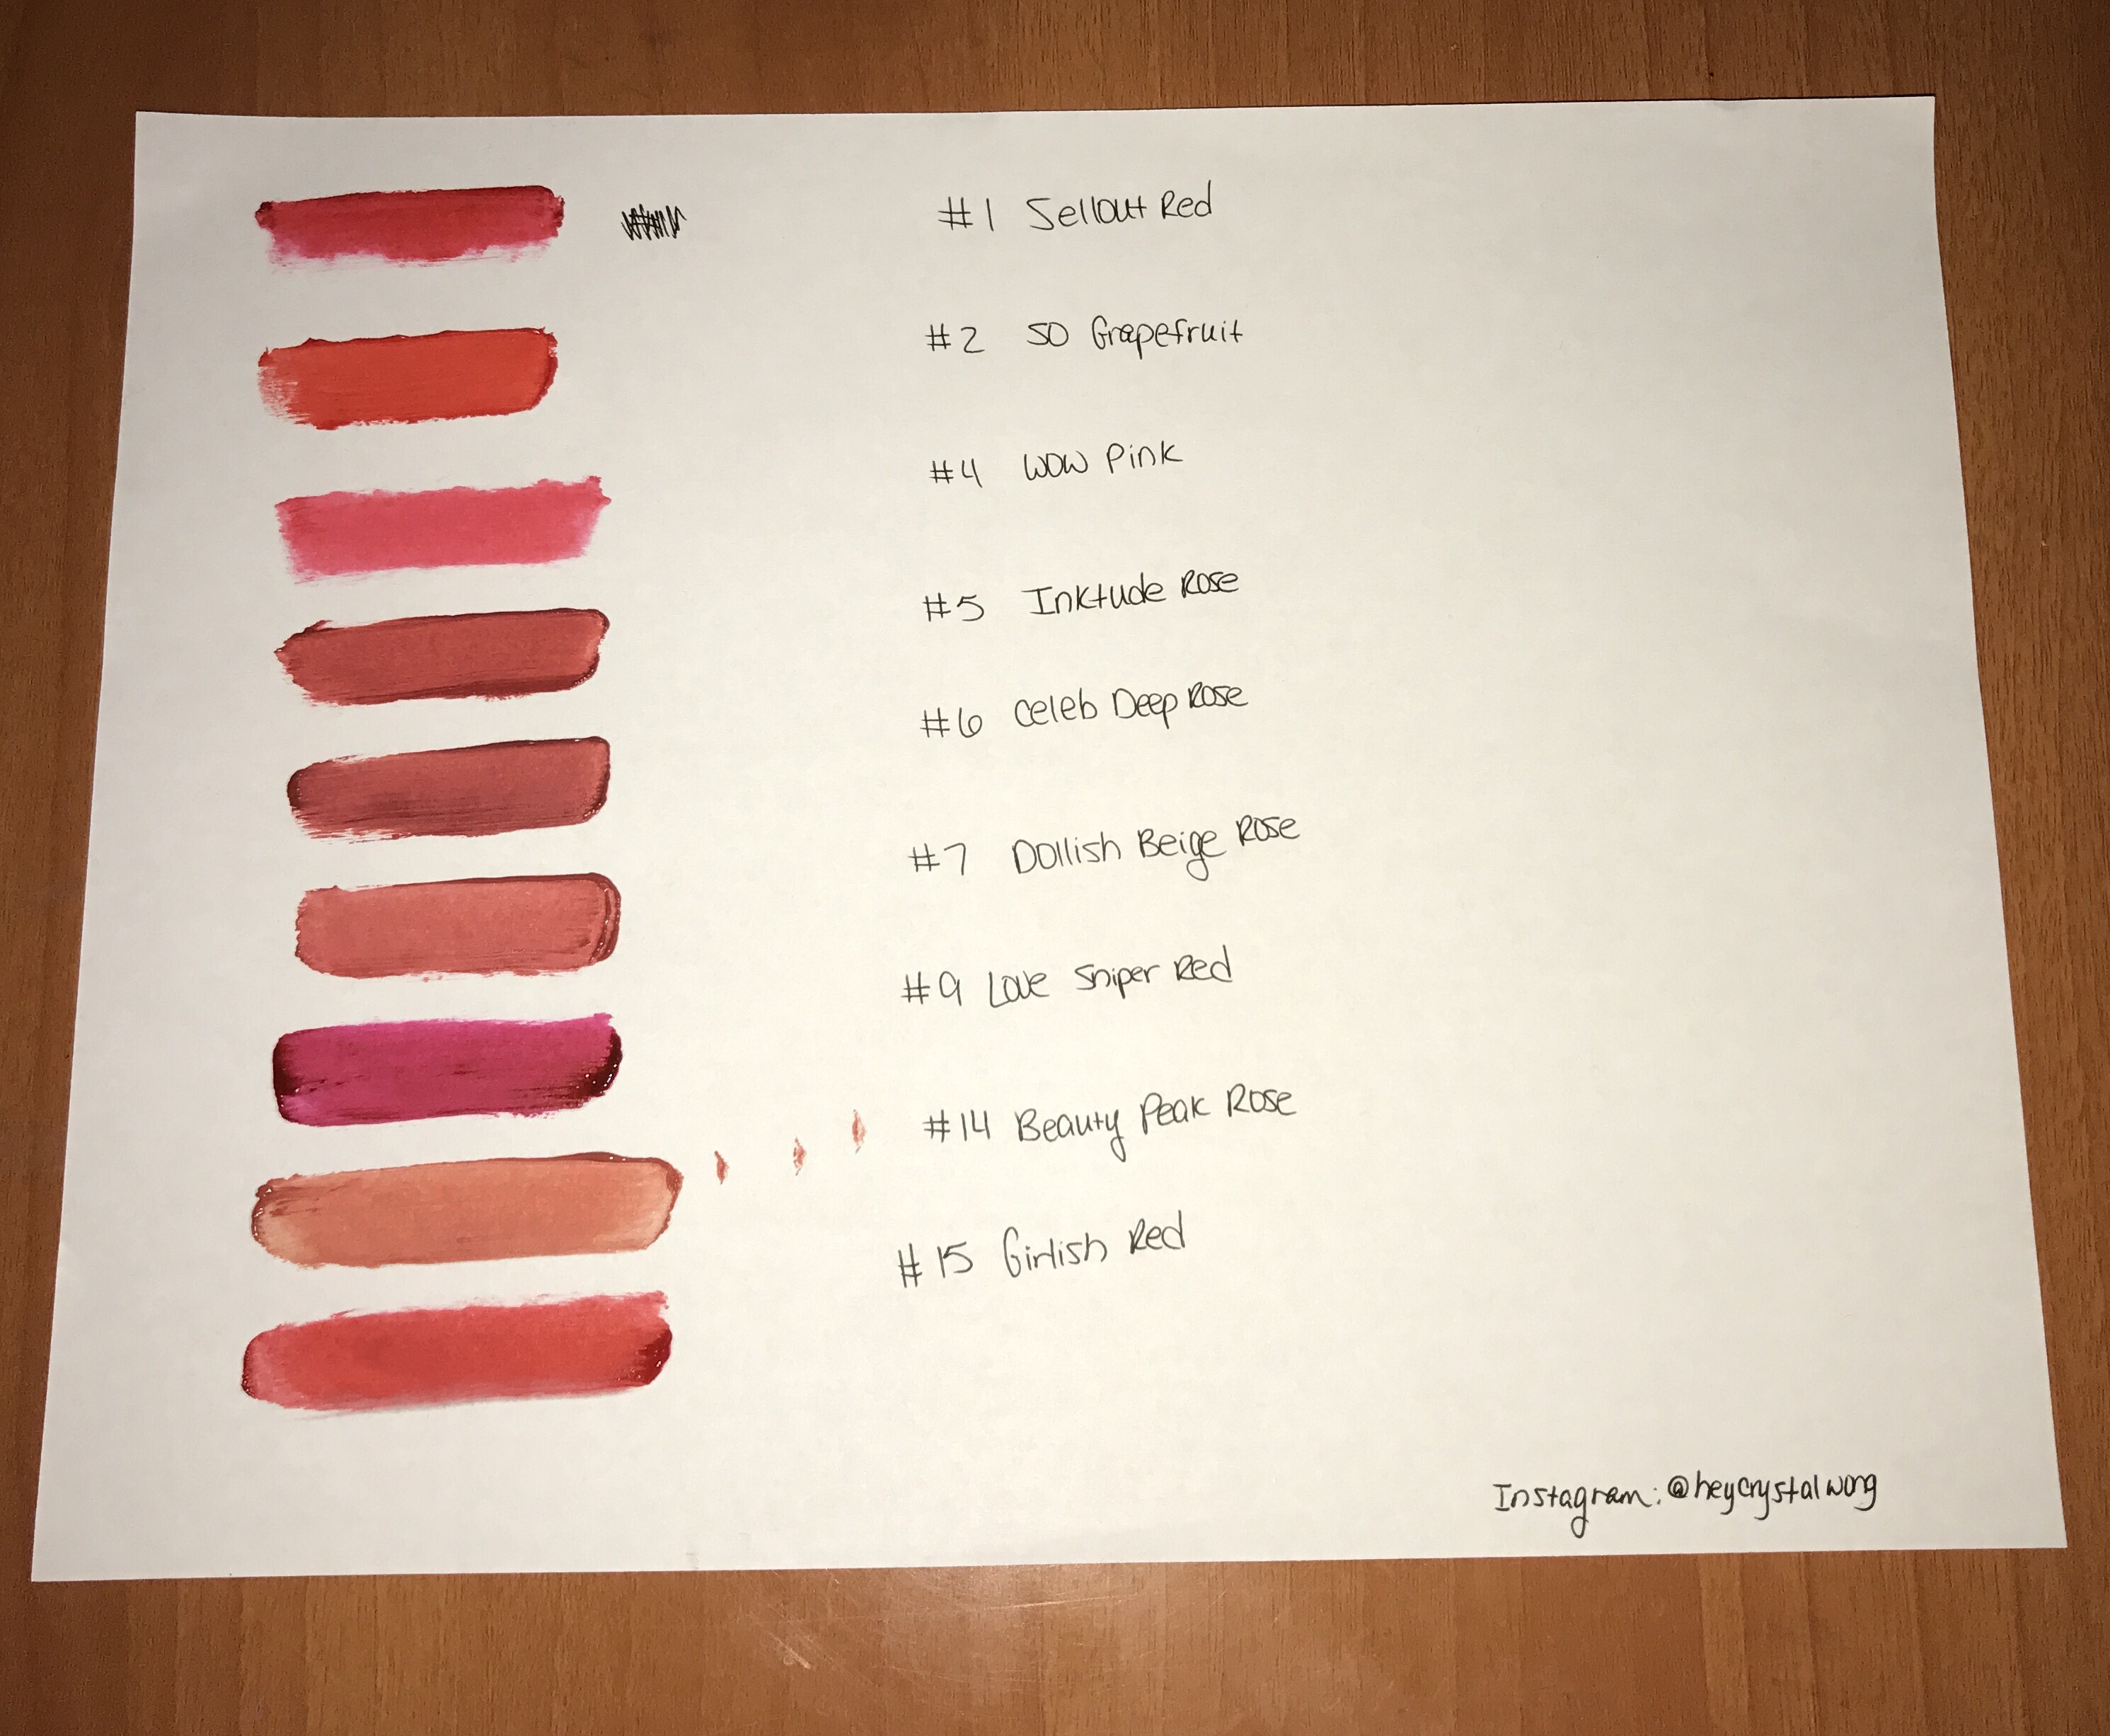 #1 Sellout Red
#2 SO Grapefruit
#4 WOW Pink
#5 Inktude Rose
#6 Celeb Deep Rose
#7 Dollish Beige Rose
#9 Love Sniper Red
#14 Beauty Peak Rose
#15 Girlish Red
Instagram: @heycrystalwong